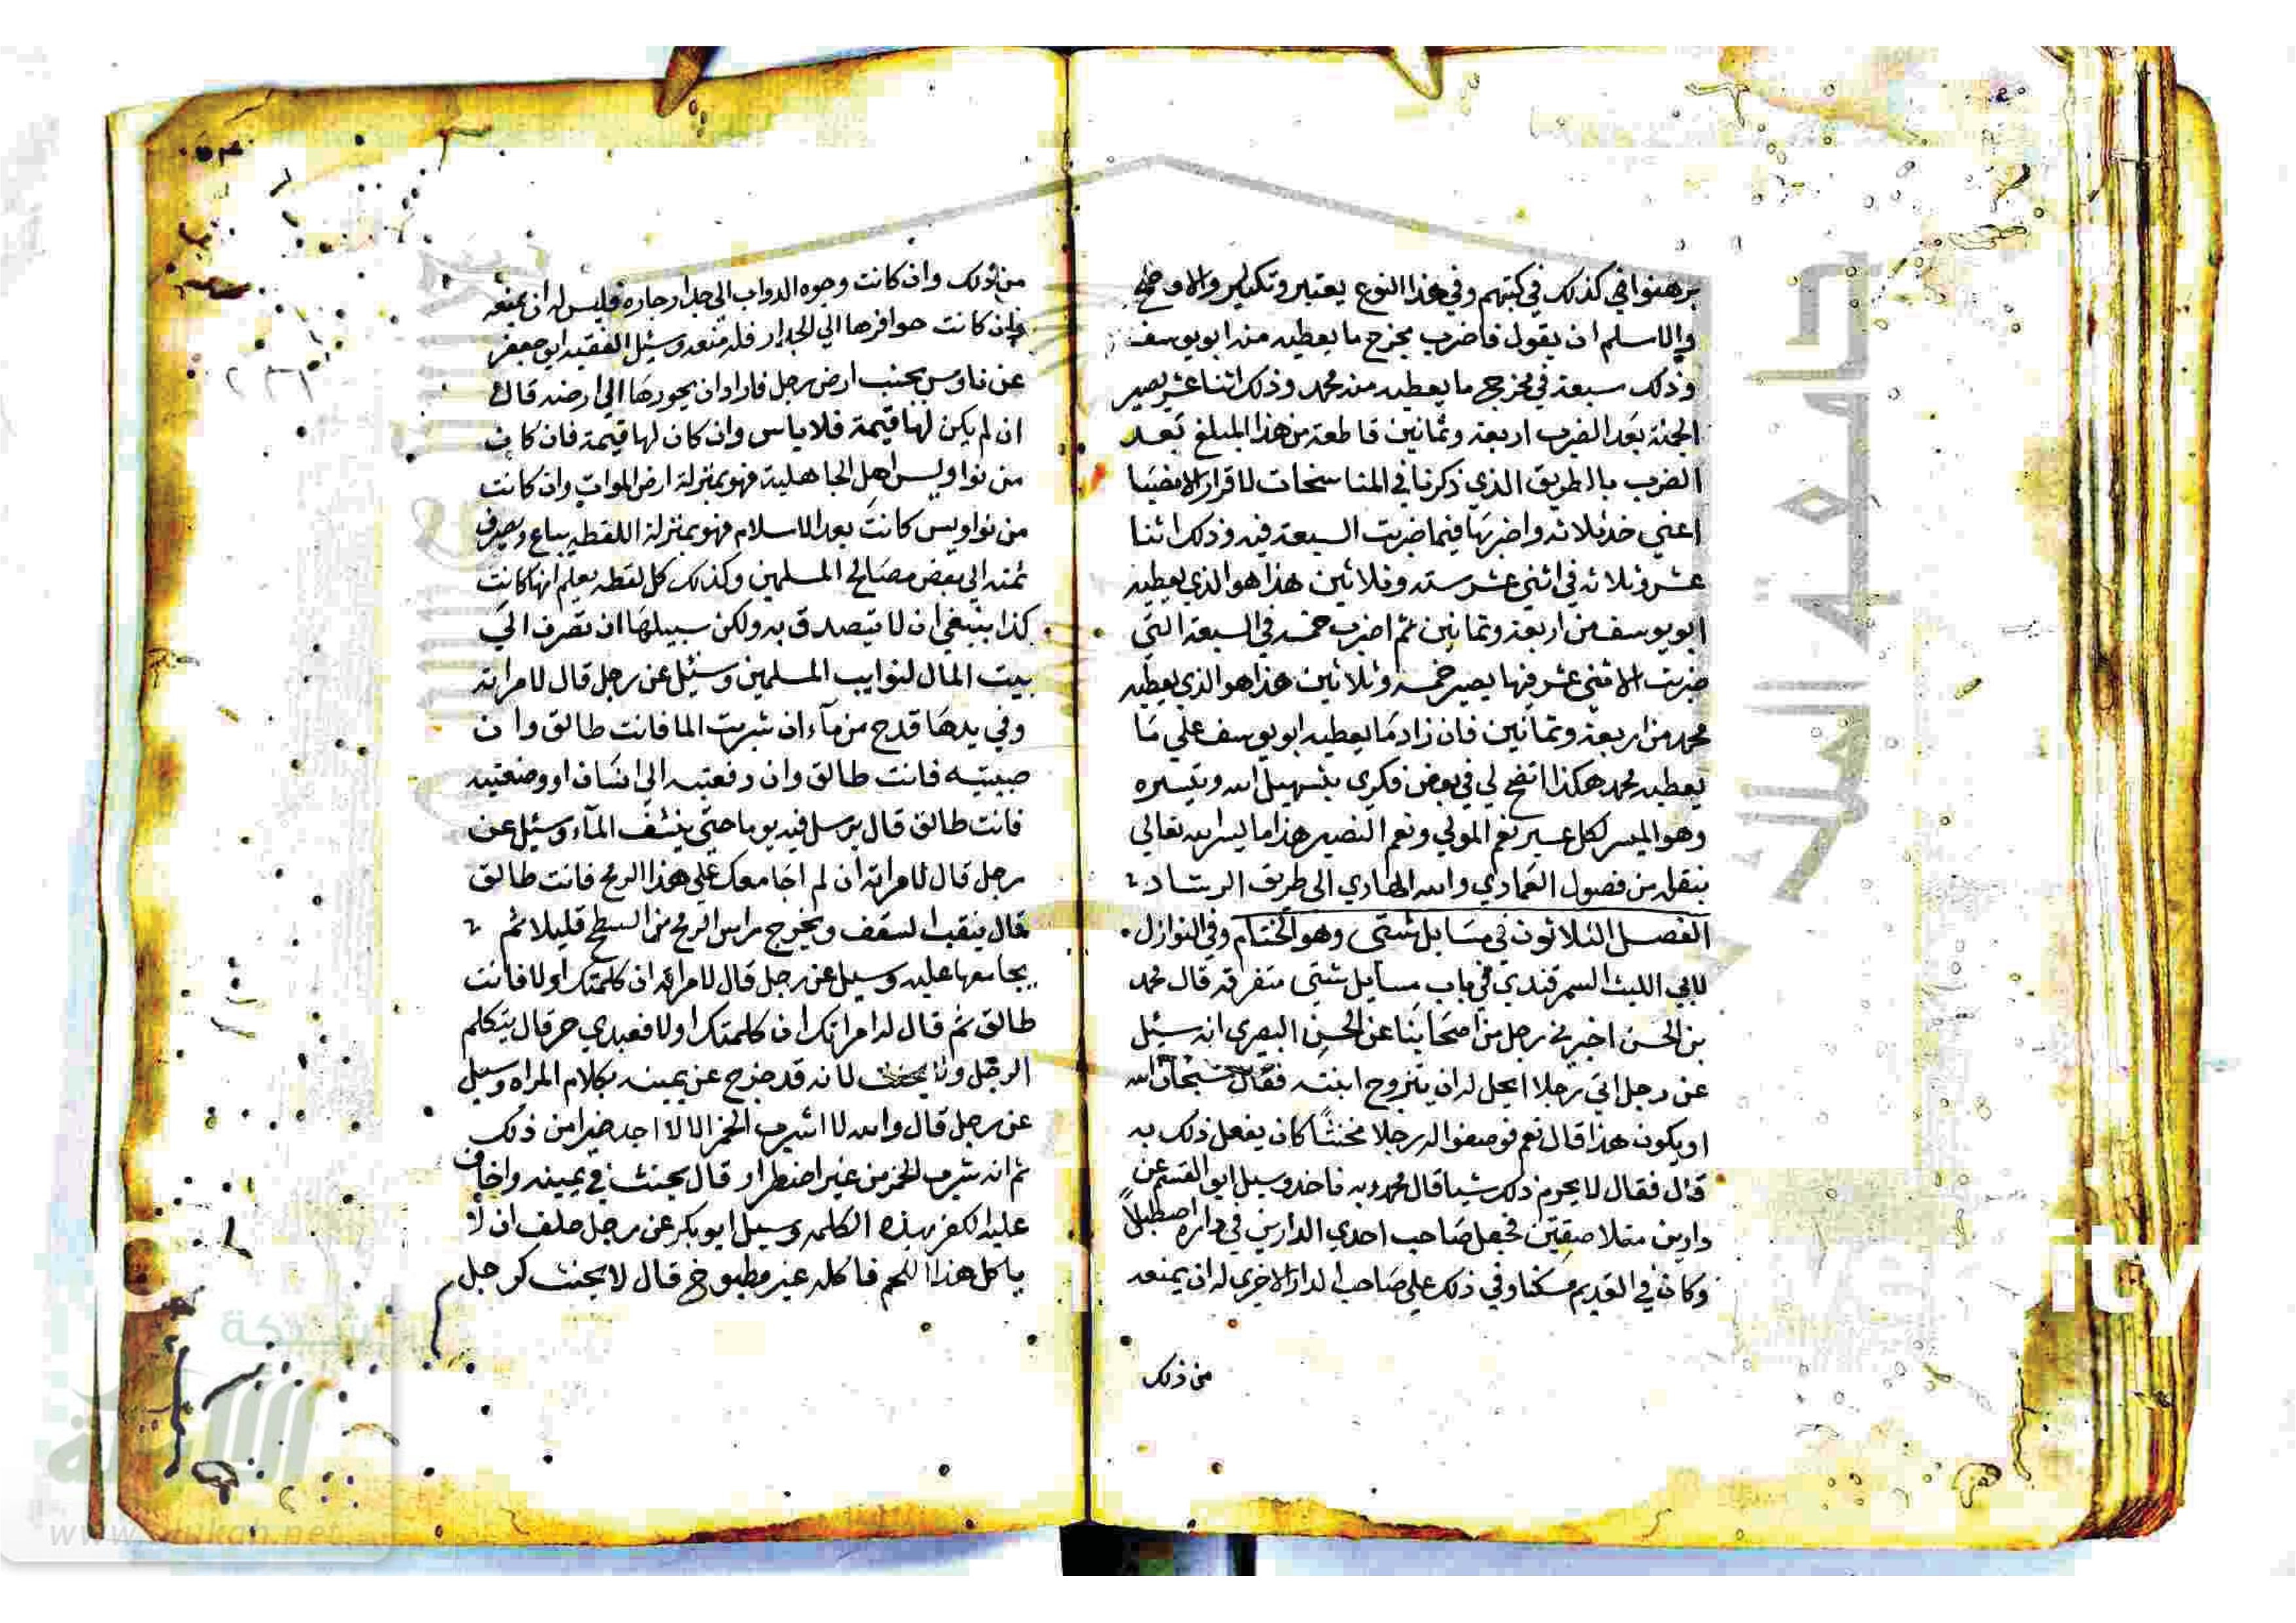 برهنوا في كذلك في كتبهم وفي هذا النوع يعتبر وتكبابر والاوضح
والاسلم ان يقول فاضرب مخرج ما يعطيه منه ابو يوسف
وذلك سبعة في مخرج ما يعطيه منه محمد وذلك اثنا عشر يصير
الجنة بعد الضرب اربعة وثمانين قاطعة من هذا المبلغ بعد
الضرب بالطريق الذي ذكرنا في المناسخات لاقرار الانصبا
اعني خذ ثلاثه واضربها فيما ضربت السبعة فيه وذلك اثنا
عشر وثلاثه في اثني عشر سته وثلاثين هذا هو الذي يعطيه
ابو يوسف من اربعة وثمانين ثم اضرب خمسه في السبعة التي
ضربت الاثني عشر فيها يصير خمسه وثلاثين هذا هو الذي يعطيه
محمد من اربعة وثمانين فان زاد ما يعطيه ابو يوسف علي ما
يعطيه محمد هكذا اتضح لي في بعض فكري بتسهيل الله وتيسيره
وهو الميسر لكل عسير نعم المولي ونعم النصير هذا ما يسر الله تعالي
بنقله من فصول العمادي والله الهادي الى طريق الرشاد
الفصل الثلاثون في مسايل شتى وهو الختام وفي النوازل
لابي الليث السمرقندي في باب مسايل شتي متفرقه قال محمد
بن الحسن اخبرني رجل من اصحابنا عن الحسن البصرى انه سئيل
عن رجل اتي رجلا ايحل له ان يتزوج ابنته فقال سبحان الله
او يكون هذا قال نعم فوصفوا له رجلا مخنثا كان يفعل ذلك به
قال فقال لا يحرم ذلك شيا قال محمد وبه ناخذ وسيل ابو القسم عن
دارين متلاصقتين فجعل صاحب احدي الدارين في داره اصطبلا
وكان في القديم مسكنا وفي ذلك علي صاحب الدار الاخري له ان يمنعه
من ذلك
من ذلك وان كانت وجوه الدواب الي جدار جاره فليس له ان يمنعه
وان كانت حوافرها الي الجدار فله منعه وسئيل الفقيه ابو جعفر
عن ناوس بجنب ارض رجل فارادان يحورها الي ارضه قال
ان لم يكن لها قيمة فلا باس وان كان لها قيمة فان كان
من نواويس اهل الجاهلية فهو بمنزلة ارض الموات وان كانت
من نواويس كانت بعد الاسلام فهو بمنزلة اللقطه يباع ويصرف
ثمنه الي بعض مصالح المسلمين وكذلك كل لقطه يعلم انها كانت
كذا ينبغي ان لا يتصدق به ولكن سبيلها ان تصرف الي
بيت المال لنوايب المسلمين وسئيل عن رجل قال لامراته
وفي يدها قدح من مآء ان شربت الما فانت طالق وان
صببتيه فانت طالق وان دفعتيه الي انسان او وضعتيه
فانت طالق قال يرسل فيه ثوبا حتي ينشف المآء وسئيل عن
رجل قال لامراته ان لم اجامعك علي هذا الرمح فانت طالق
قال ينقب السقف ويخرج راس الرمح من السطح قليلا ثم
يجامعها عليه وسيل عن رجل قال لامراته ان كلمتك اولا فانت
طالق ثم قال له امراتك ان كلمتك اولا فعبدي حر قال يتكلم
الرجل ولا يحنث لانه قد خرج عن يمينه بكلام المراه وسيل
عن رجل قال والله لا اشرب الخمر الا لا اجد ضرا من ذلك
ثم انه شرب الخمر من غير اضطرار قال يحنث في يمينه واخاف
عليه الكفر بهذه الكلمه وسيل ابو بكر عن رجل حلف ان لا
ياكل هذا اللحم فاكله غير مطبوخ قال لا يحنث كرجل